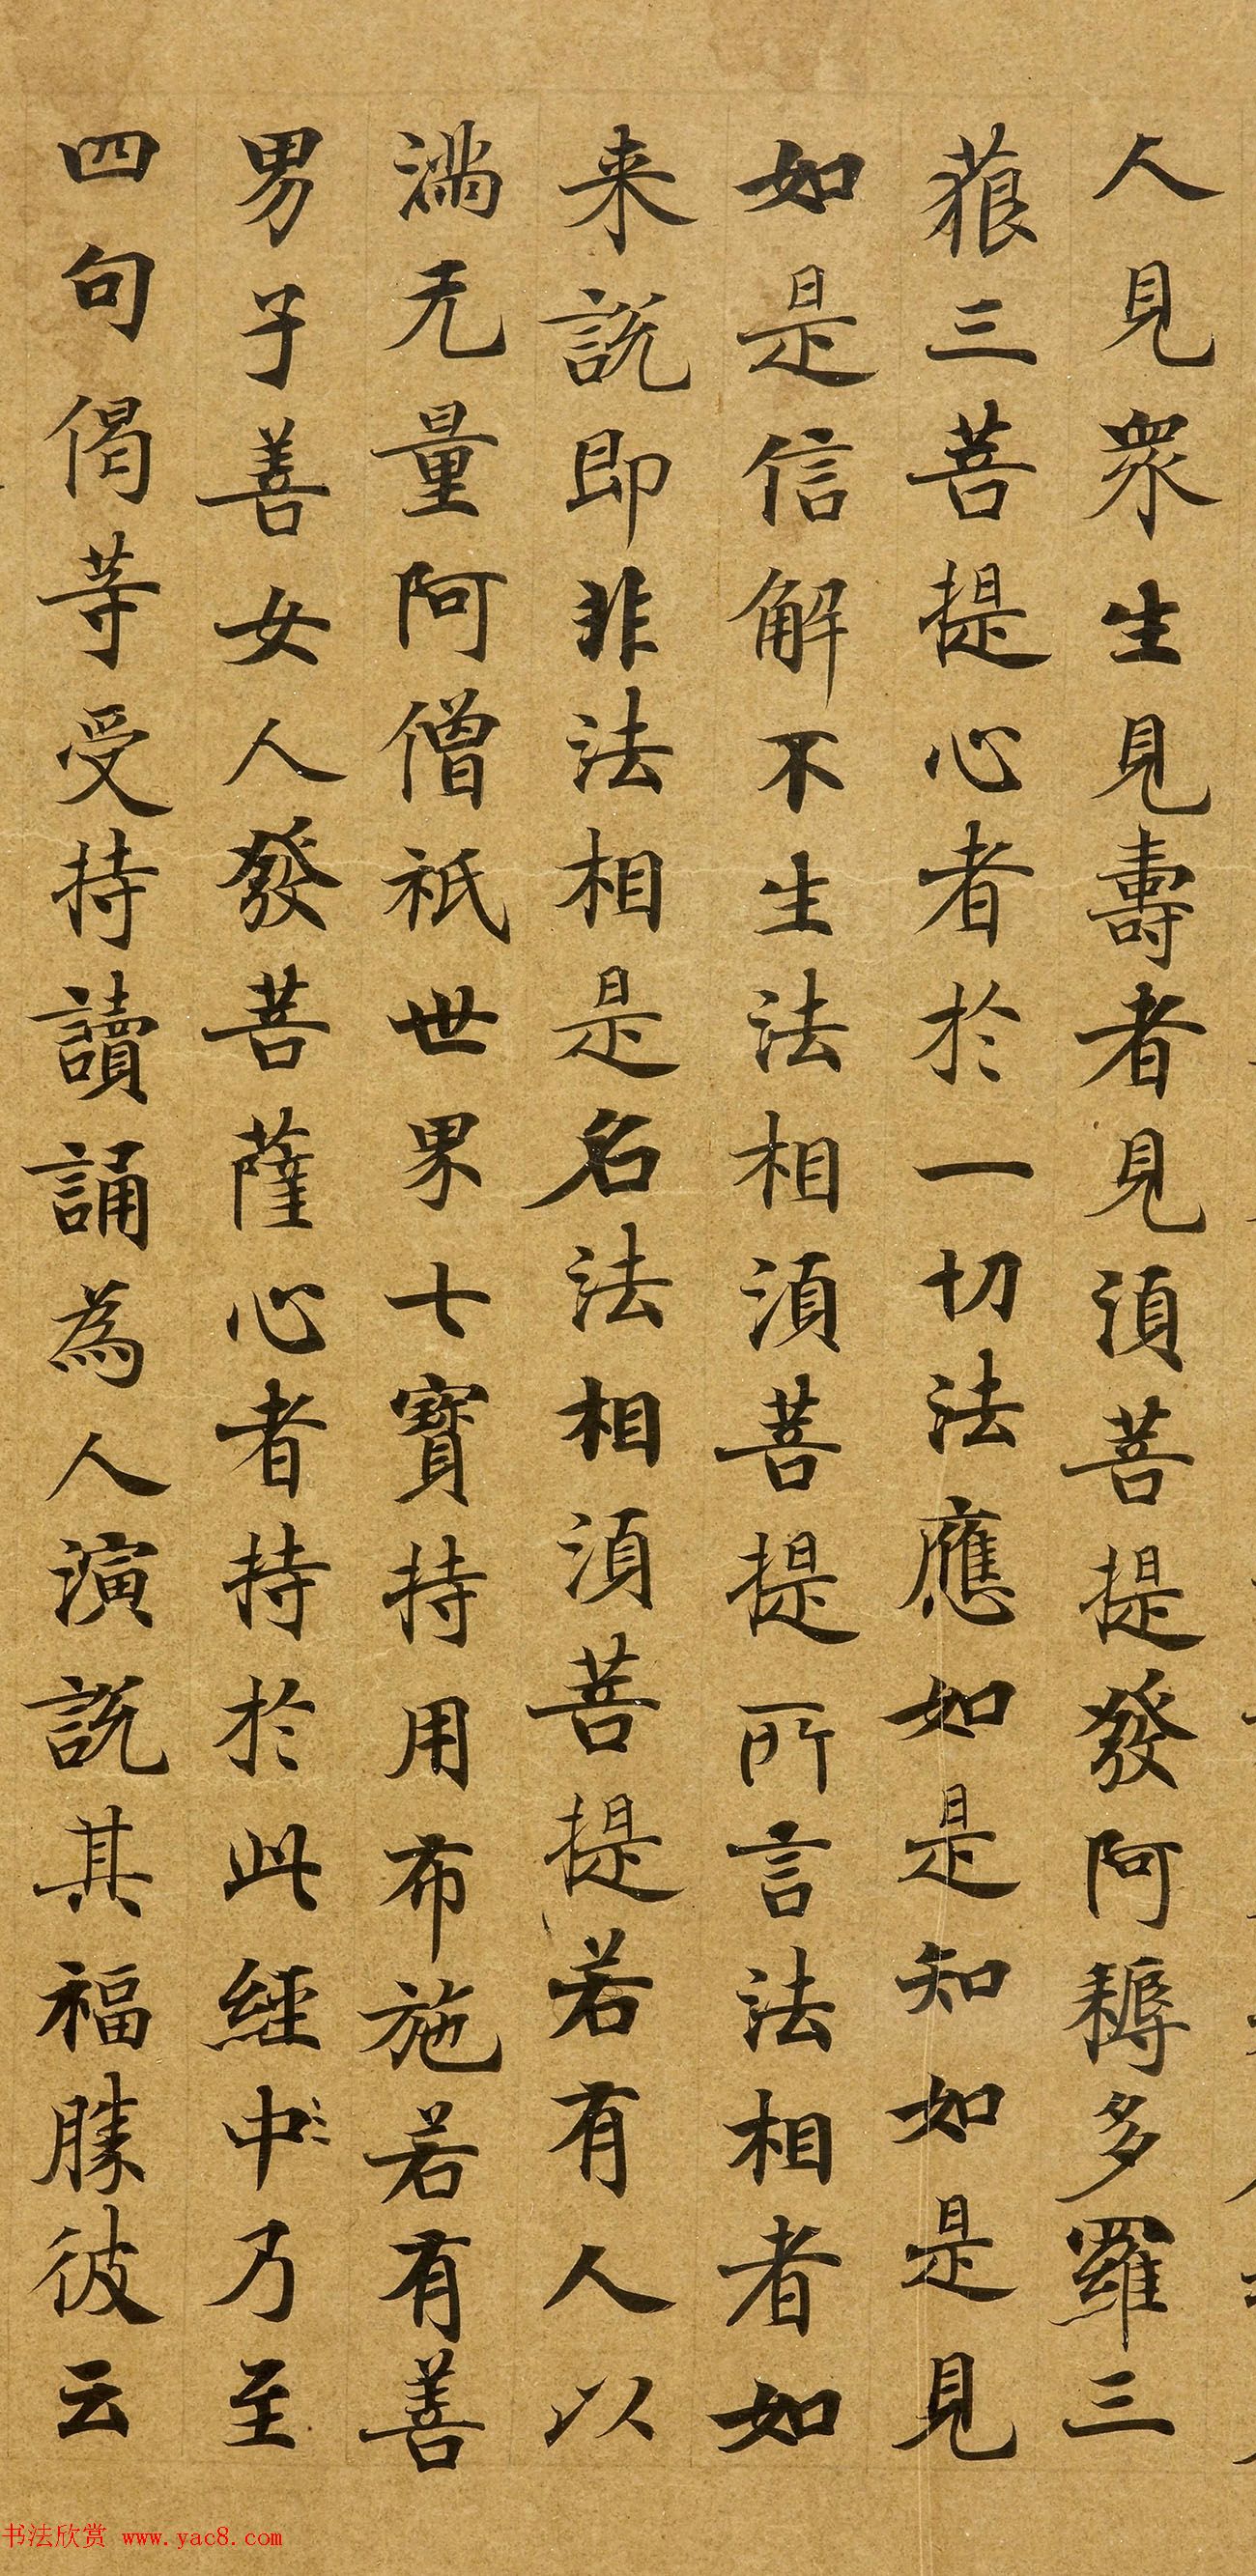 人見衆生見壽者見須菩提發阿耨多羅三
藐三菩提心者於一切法應如是知如是見
如是信解不生法相須菩提所言法相者如
来說即非法相是名法相須菩提若有人以
滿无量阿僧祇世界七寳持用布施若有善
男子善女人發菩薩心者持於此經中乃至
四句偈等受持讀誦為人演說其福勝彼云
书法欣赏 www.yac8.com